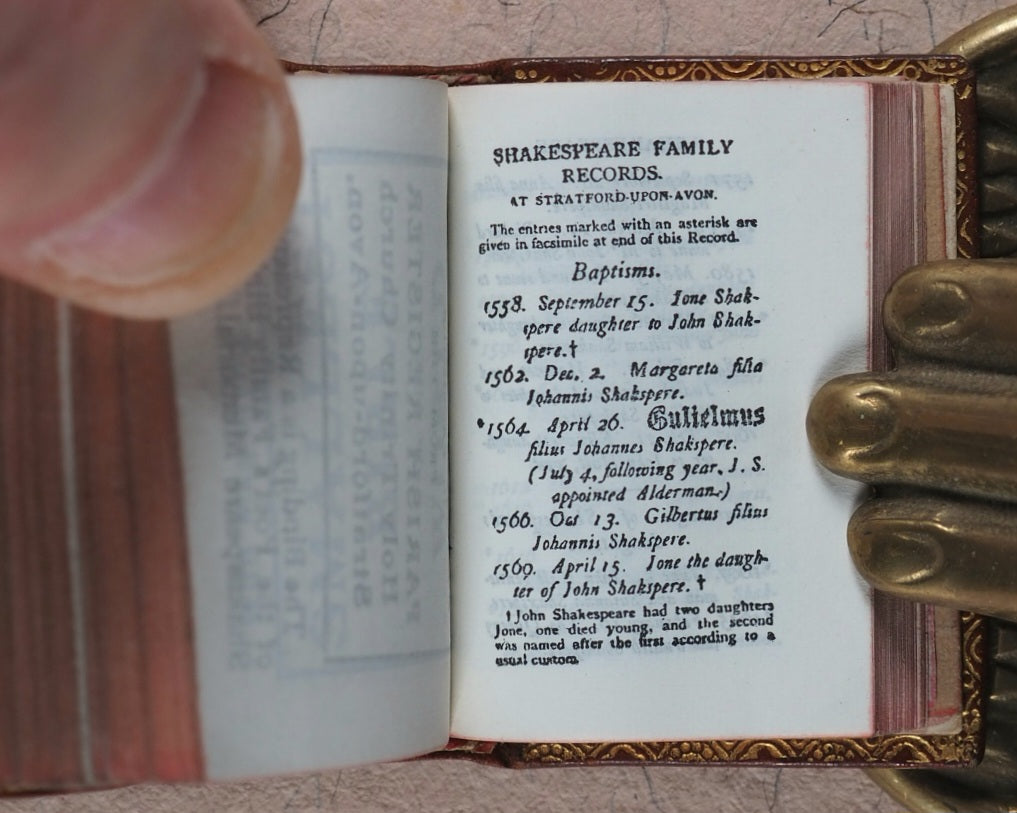 SHAKESPEARE FAMILY
RECORDS.
AT STRATFORD-UPON-AVON.
The entries marked with an asterisk are
given in facsimile at end of this Record.
Baptisms.
1558. September 15. Ione Shak-
spere daughter to John Shak-
spere.†
1562. Dec. 2. Margareta filia
Johannis Shakspere.
*1564. April 26. Gulielmus
filius Johannes Shakspere.
(July 4, following year, J. S.
appointed Alderman.)
1566. Oct 13. Gilbertus filius
Johannis Shakspere.
1569. April 15. Ione the daugh-
ter of John Shakspere. †
† John Shakespeare had two daughters
Jone, one died young, and the second
was named after the first according to a
usual custom.